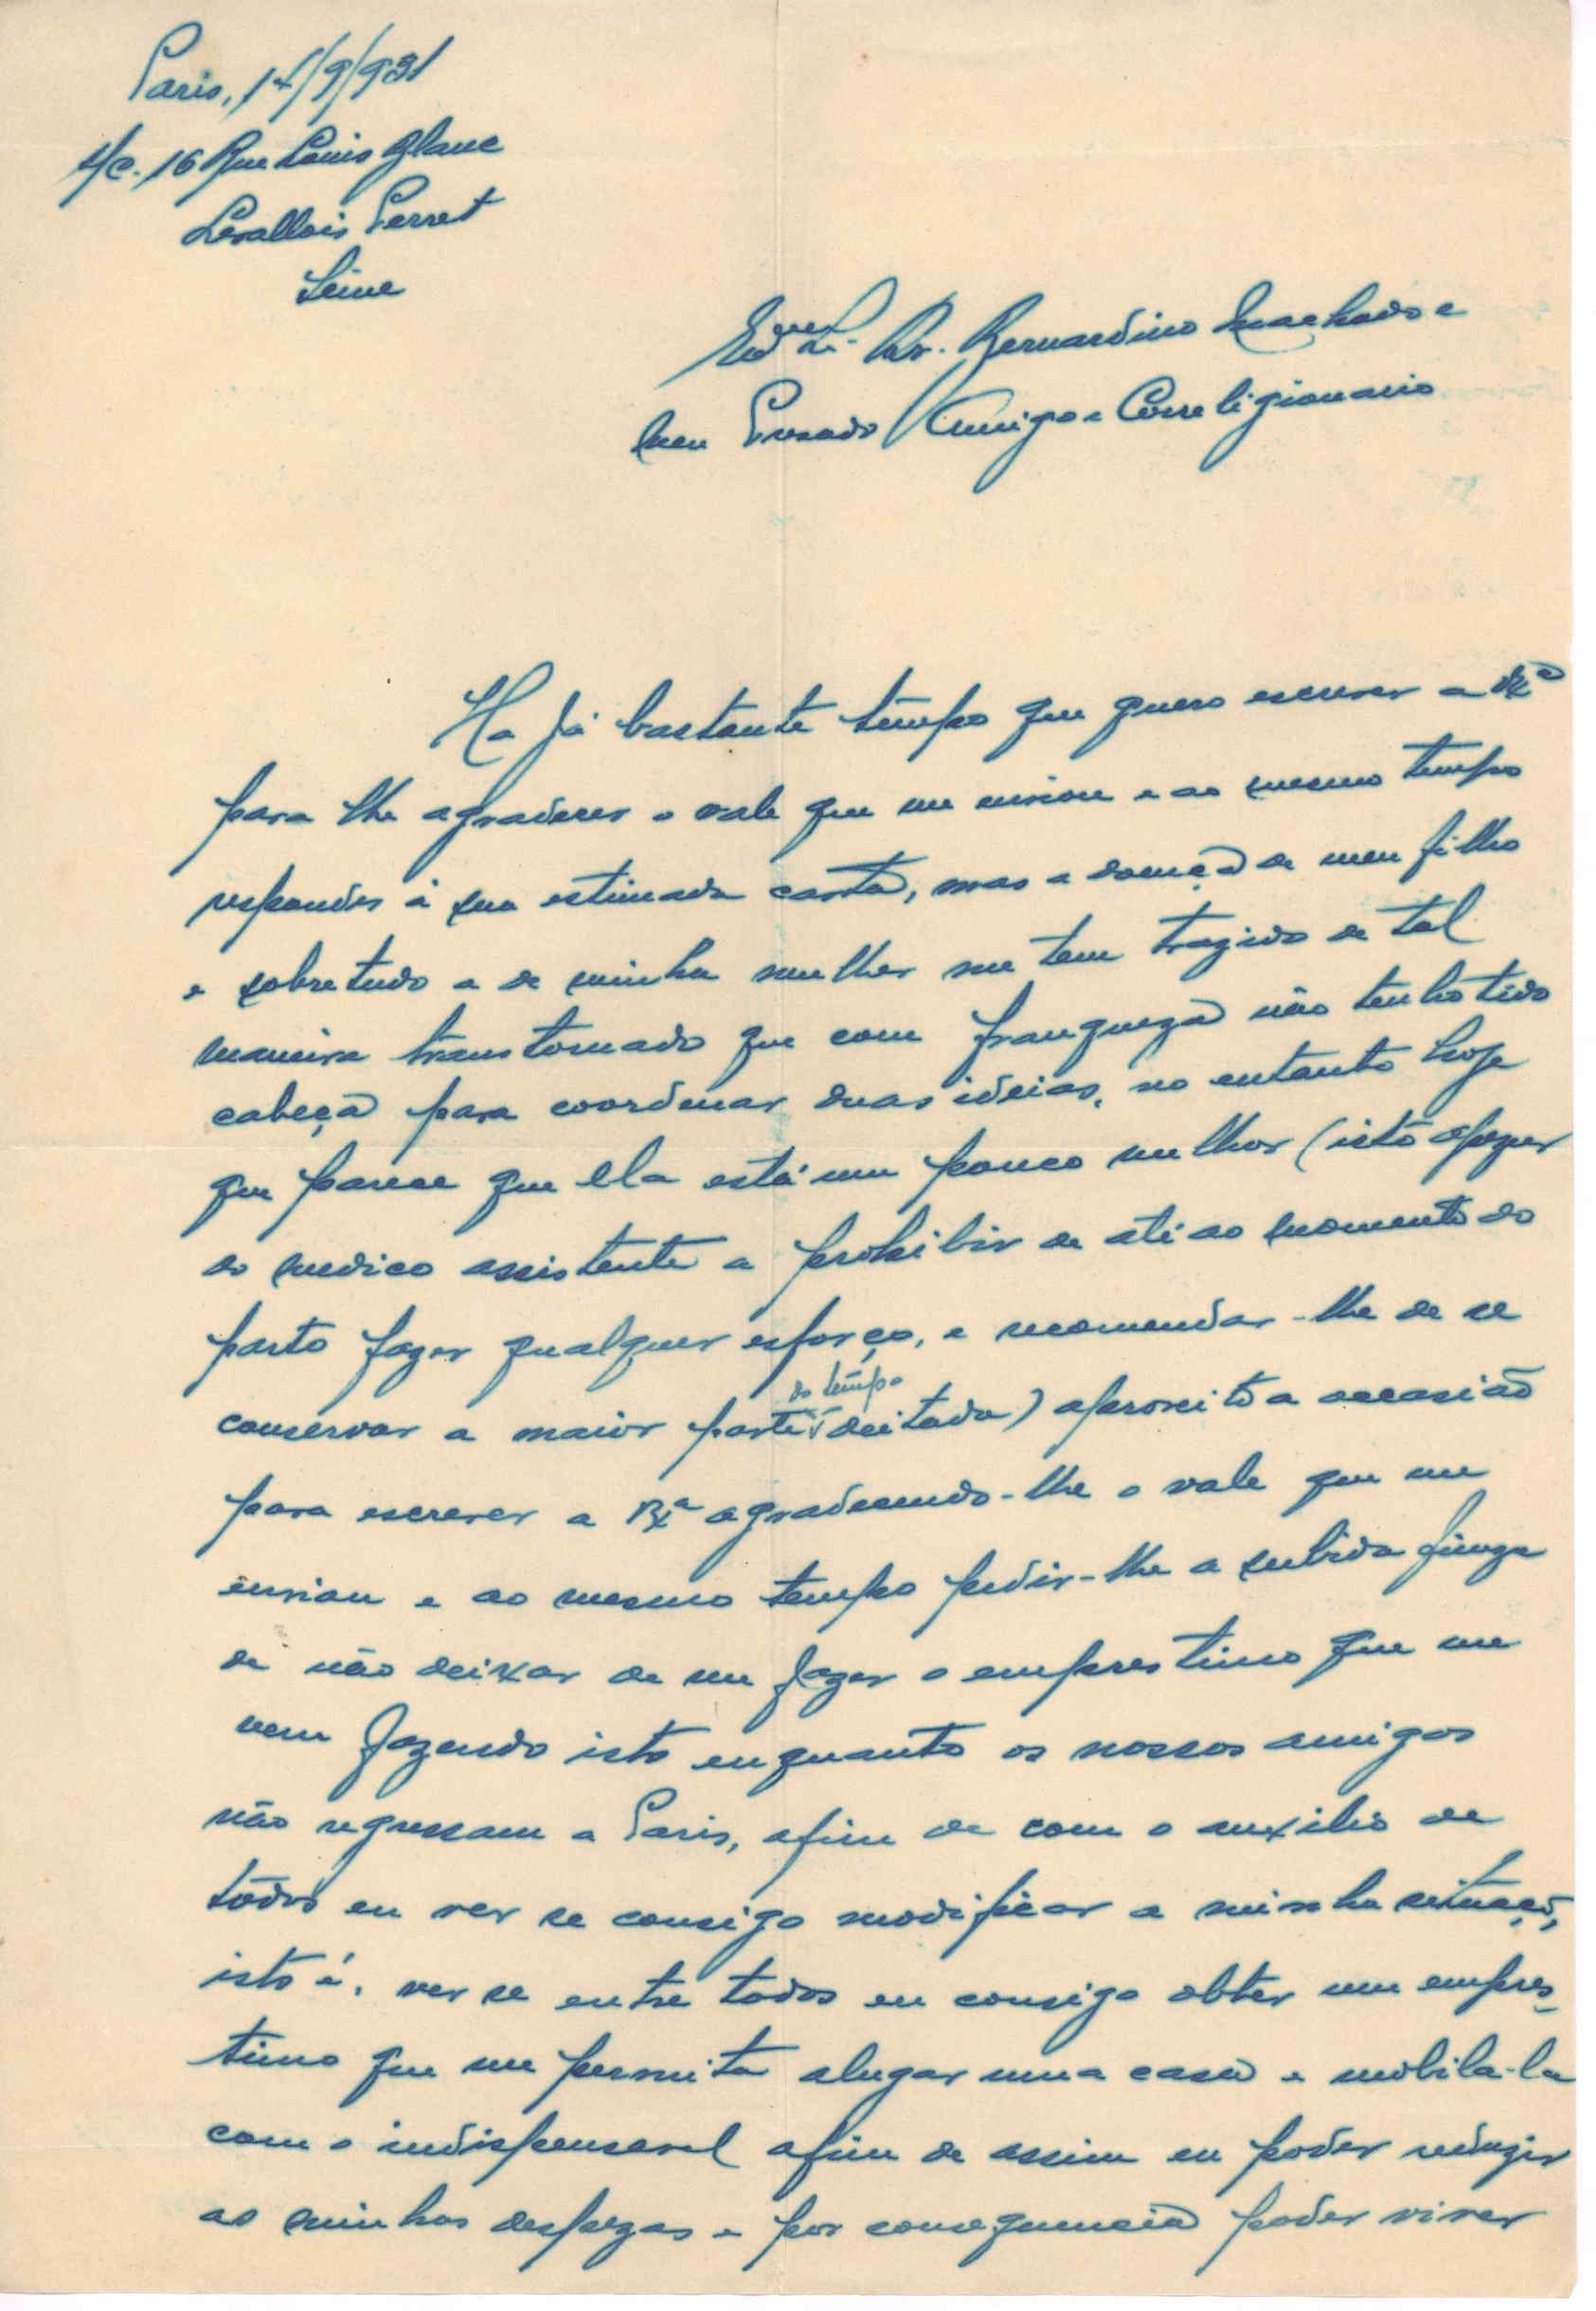 Paris, 17/9/931
S/c. 16 Rue Louis Blanc
Levallois Perret
Seine
Dr. Bernardino Machado e
Meu Presado Amigo e Correligionario
Ha já bastante tempo que quero escrever a V. Exª
para lhe agradecer o vale que me enviou e ao mesmo tempo
responder á sua estimada carta, mas a doença de meu filho
e sobretudo a de minha mulher me tem trazido de tal
maneira transtornado que com franqueza não tenho tido
cabeça para coordenar duas ideias, no entanto hoje
que parece que ela está um pouco melhor (isto apezar
do medico assistente a prohibir de até ao momento do
parto fazer qualquer esforço, e recomendar-lhe de se
conservar a maior parte do tempo deitada) aproveito a occasião
para escrever a V. Exª agradecendo-lhe o vale que me
enviou e ao mesmo tempo pedir-lhe a subida fineza
de não deixar de me fazer o emprestimo que me
vem fazendo isto enquanto os nossos amigos
não regressam a Paris, afim de com o auxilio de
todos eu ver se consigo modificar a minha situação,
isto é, ver se entre todos eu consigo obter um empres-
timo que me permita alugar uma casa e mobila-la
com o indispensavel afim de assim eu poder reduzir
as minhas despezas e por consequencia poder viver